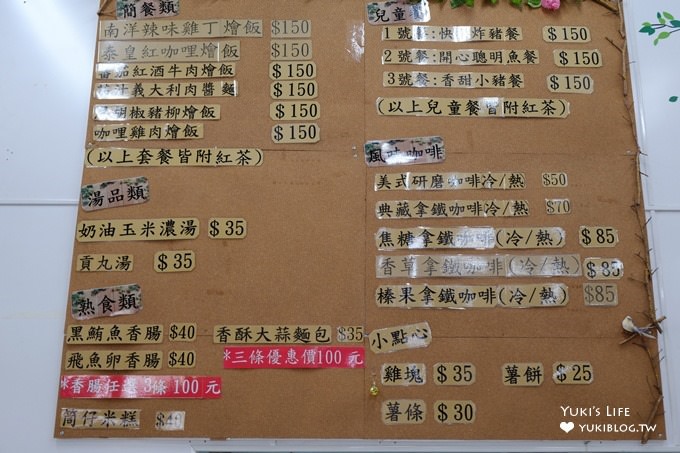 簡餐類
南洋辣味雞丁燴飯 $150
泰皇紅咖哩燴飯 $150
番茄紅酒牛肉燴飯 $150
汁義大利肉醬麵 $150
胡椒豬柳燴飯 $150
咖哩雞肉燴飯 $150
(以上套餐皆附紅茶)
湯品類
奶油玉米濃湯 $35
貢丸湯 $35
熱食類
黑鮪魚香腸 $40
飛魚卵香腸 $40
*香腸任選3條100元
筒仔米糕 $40
香酥大蒜麵包 $35
*三條優惠價100元
兒童餐
1號餐:快 炸豬餐 $150
2號餐:開心聰明魚餐 $150
3號餐:香甜小豬餐 $150
(以上兒童餐皆附紅茶)
風味咖啡
美式研磨咖啡冷/熱 $50
典藏拿鐵咖啡冷/熱 $70
焦糖拿鐵咖啡(冷/熱) $85
香草拿鐵咖啡(冷/熱) $85
榛果拿鐵咖啡(冷/熱) $85
小點心
雞塊 $35 薯餅 $25
薯條 $30
YUKI's LIFE
YUKIBLOG.TW